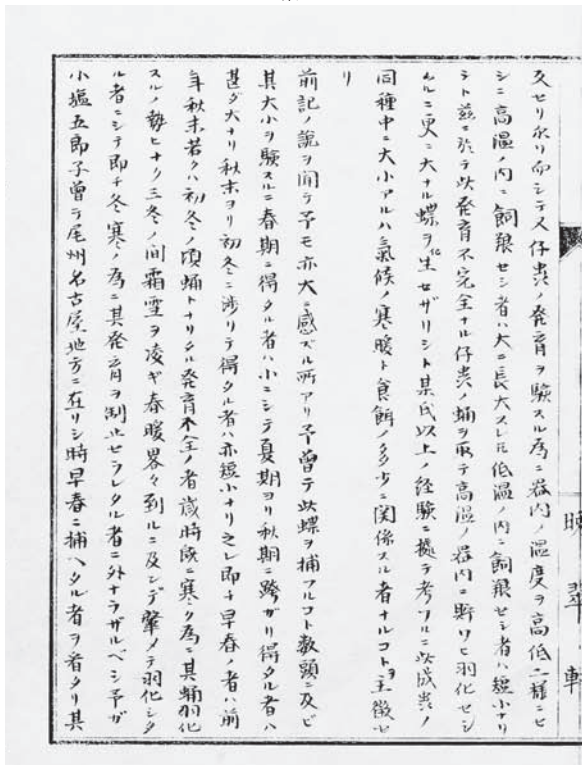 又セリ於リ而シテ又仔虫ノ発育ヲ験スル為ニ器内ノ温度ヲ高低二種ニセ
シニ高温ノ内ニ飼養セシ者ハ大ニ長大スレ𪜈低温ノ内ニ飼養セシ者ハ短小ナリ
ト茲ニ於テ此発育不完全ナル仔虫ノ蛹ヲ取テ高温ノ器内ニ貯ワヒ羽化セシ
ムルニ更ニ大ナル蝶ヲ化生セザリシト某氏以上ノ経験ニ據テ考フルニ此成虫ノ
同種中ニ大小アルハ氣候ノ寒暖ト食餌ノ多少ニ関係スル者ナルコトヲ主徴セ
リ
前記ノ説ヲ聞テ予モ亦大ニ感ズル所アリ予曽テ此蝶ヲ捕フルコト数頭ニ及ビ
其大小ヲ験スルニ春期ニ得タル者ハ小ニシテ夏期ヨリ秋期ニ跨ガリ得タル者ハ
甚ダ大ナリ秋末ヨリ初冬ニ渉リテ得タル者ハ亦短小ナリ之レ即チ早春ノ者ハ前
年秋末若クハ初冬ノ頃蛹トナリタル発育不全ノ者歳時既ニ寒ク為ニ其蛹羽化
スルノ勢ヒナク三冬ノ間霜雪ヲ凌ギ春暖畧々到ルニ及ンデ肇メテ羽化シタ
ル者ニシテ即チ冬寒ノ為ニ其発育ヲ制止セラレタル者ニ外ナラザルベシ予ガ
小塩五郎子曽テ尾州名古屋地方ニ在リシ時早春ニ捕ヘタル者ヲ看タリ其
晩翠軒